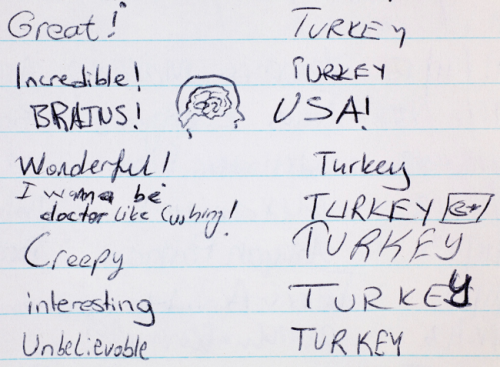 Great! TURKEY
Incredible! TURKEY
BRAINS! USA!
Wonderful! Turkey
I wanna be
doctor like Cushing! TURKEY
Creepy TURKEY
interesting TURKEY
Unbelievable TURKEY